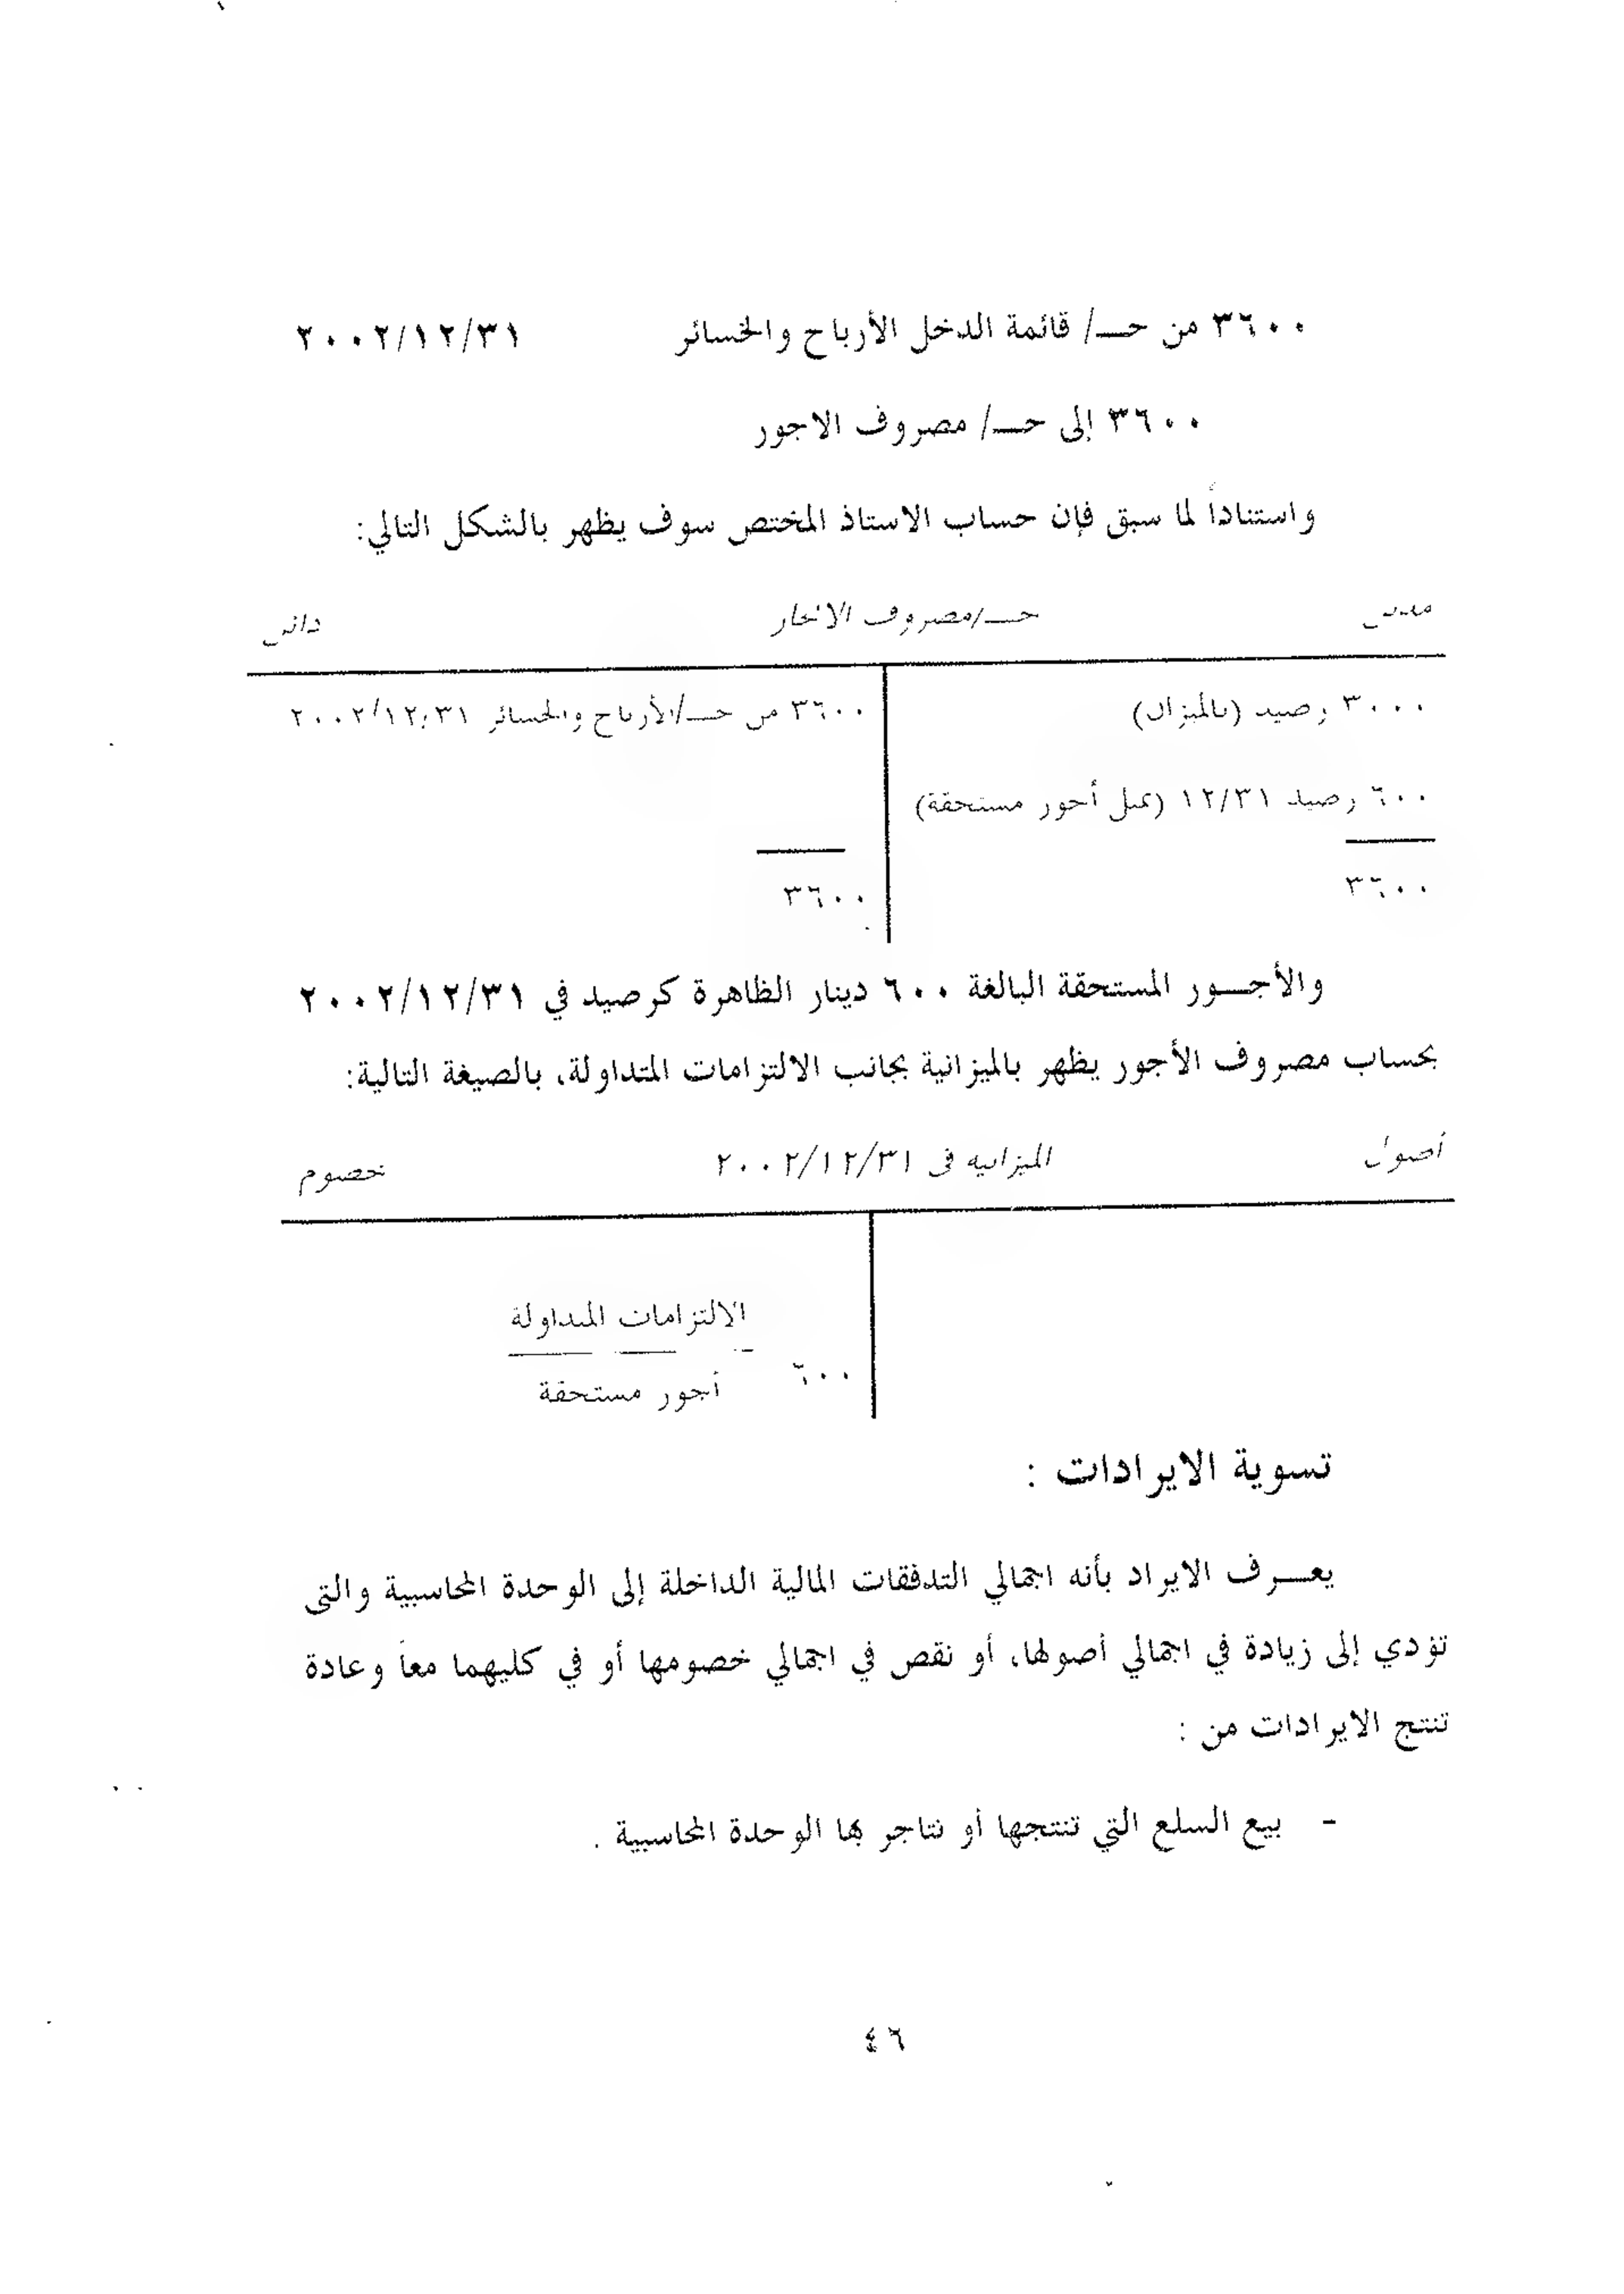 ٣٦٠٠ من حـــ/ قائمة الدخل الأرباح والخسائر ٢٠٠٢/١٢/٣١
٣٦٠٠ إلى حـــ/ مصروف الاجور
واستناداً لما سبق فإن حساب الاستاذ المختص سوف يظهر بالشكل التالي:
مدين حـــ/مصروف دائن
٣٠٠٠ رصيد (بالميزان) ٣٦٠٠ من حـــ/الأرباح والخسائر ٢٠٠٢/١٢/٣١
٦٠٠ رصيد ١٢/٣١ (تمثل أجور مستحقة)
٣٦٠٠ ٣٦٠٠
والأجـــور المستحقة البالغة ٦٠٠ دينار الظاهرة كرصيد في ٢٠٠٢/١٢/٣١
بحساب مصروف الأجور يظهر بالميزانية بجانب الالتزامات المتداولة، بالصيغة التالية:
أصول الميزانية في ٢٠٠٢/١٢/٣١ خصوم
الالتزامات المتداولة
٦٠٠ أجور مستحقة
تسوية الايرادات :
يعـــرف الايراد بأنه اجمالي التدفقات المالية الداخلة إلى الوحدة المحاسبية والتى
تؤدي إلى زيادة في اجمالي أصولها، أو نقص في اجمالي خصومها أو في كليهما معاً وعادة
تنتج الايرادات من :
- بيع السلع التي تنتجها أو نتاجر بها الوحدة المحاسبية .
٤٦